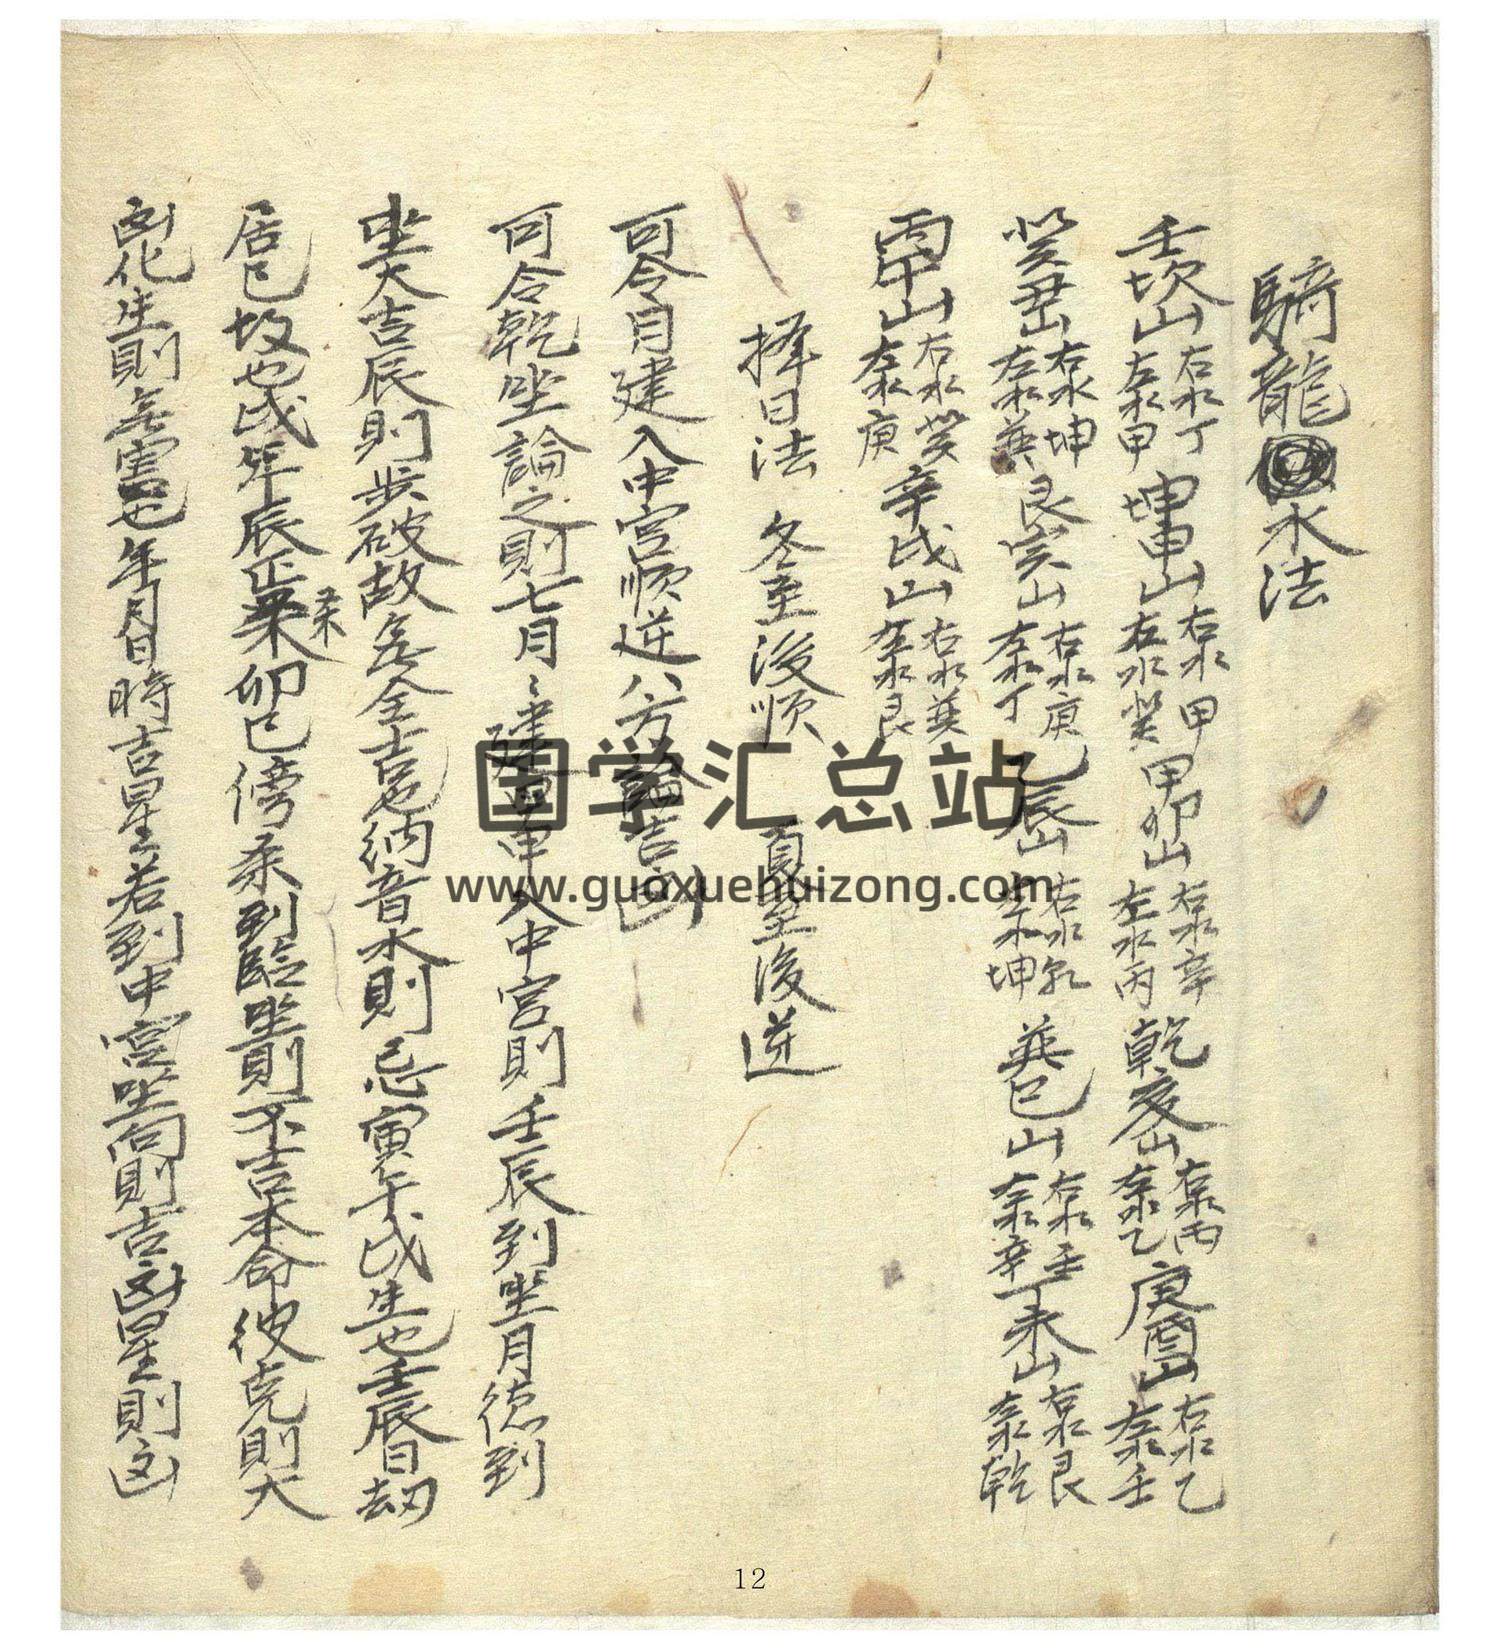 騎龍水法
壬坎山右水丁左水甲坤申山右水甲左水癸甲卯山右水辛左水丙乾亥山右水丙左水乙庚酉山右水乙左水壬
癸丑山右水坤左水巽艮寅山右水庚左水丁乙辰山右水乾左水坤巽巳山右水壬左水辛丁未山右水艮左水乾
丙午山右水癸左水庚辛戌山右水巽左水艮
擇日法 冬至後順 夏至後逆
可令月建入中宮順逆八方論吉凶
可令乾坐論之則七月月建甲入中宮則壬辰到坐月德到
坐大吉辰則步破故無全吉也納音水則忌寅午戌生也壬辰日劫
居巳故也戌年辰正杀卯巳傍杀到臨坐則不吉本命彼克則大
凶化生則無害也年月日時吉星若到中宮坐向則吉凶星則凶
国学汇总站
www.guoxuehuizong.com
12